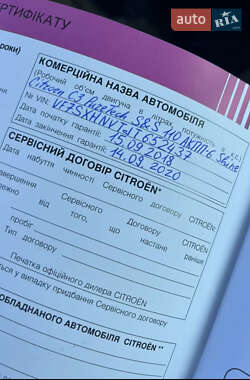 AUTO RIA.com
СЕРТИФІКАТУ
роки)
КОМЕРЦІЙНА НАЗВА АВТОМОБІЛЯ
(Робочий об'єм двигуна у літрах, потужність у к.с.)
Citroen C3 Puretech S&S 110 АКПП-6 Shine
№ VIN: VF7SXHNV
Дата початку гарантії: 15.09.2018
Дата закінчення гарантії: 14.09.2020
СЕРВІСНИЙ ДОГОВІР CITROËN*
Дата набуття чинності Сервісного договору CITROËN
завершення Сервісного договору CITROËN
від того, що настане раніше
пробіг
Тип договору
Печатка офіційного дилера CITROËN
у випадку придбання Сервісного договору
ОБЛАДНАНОГО АВТОМОБІЛЯ CITROËN **